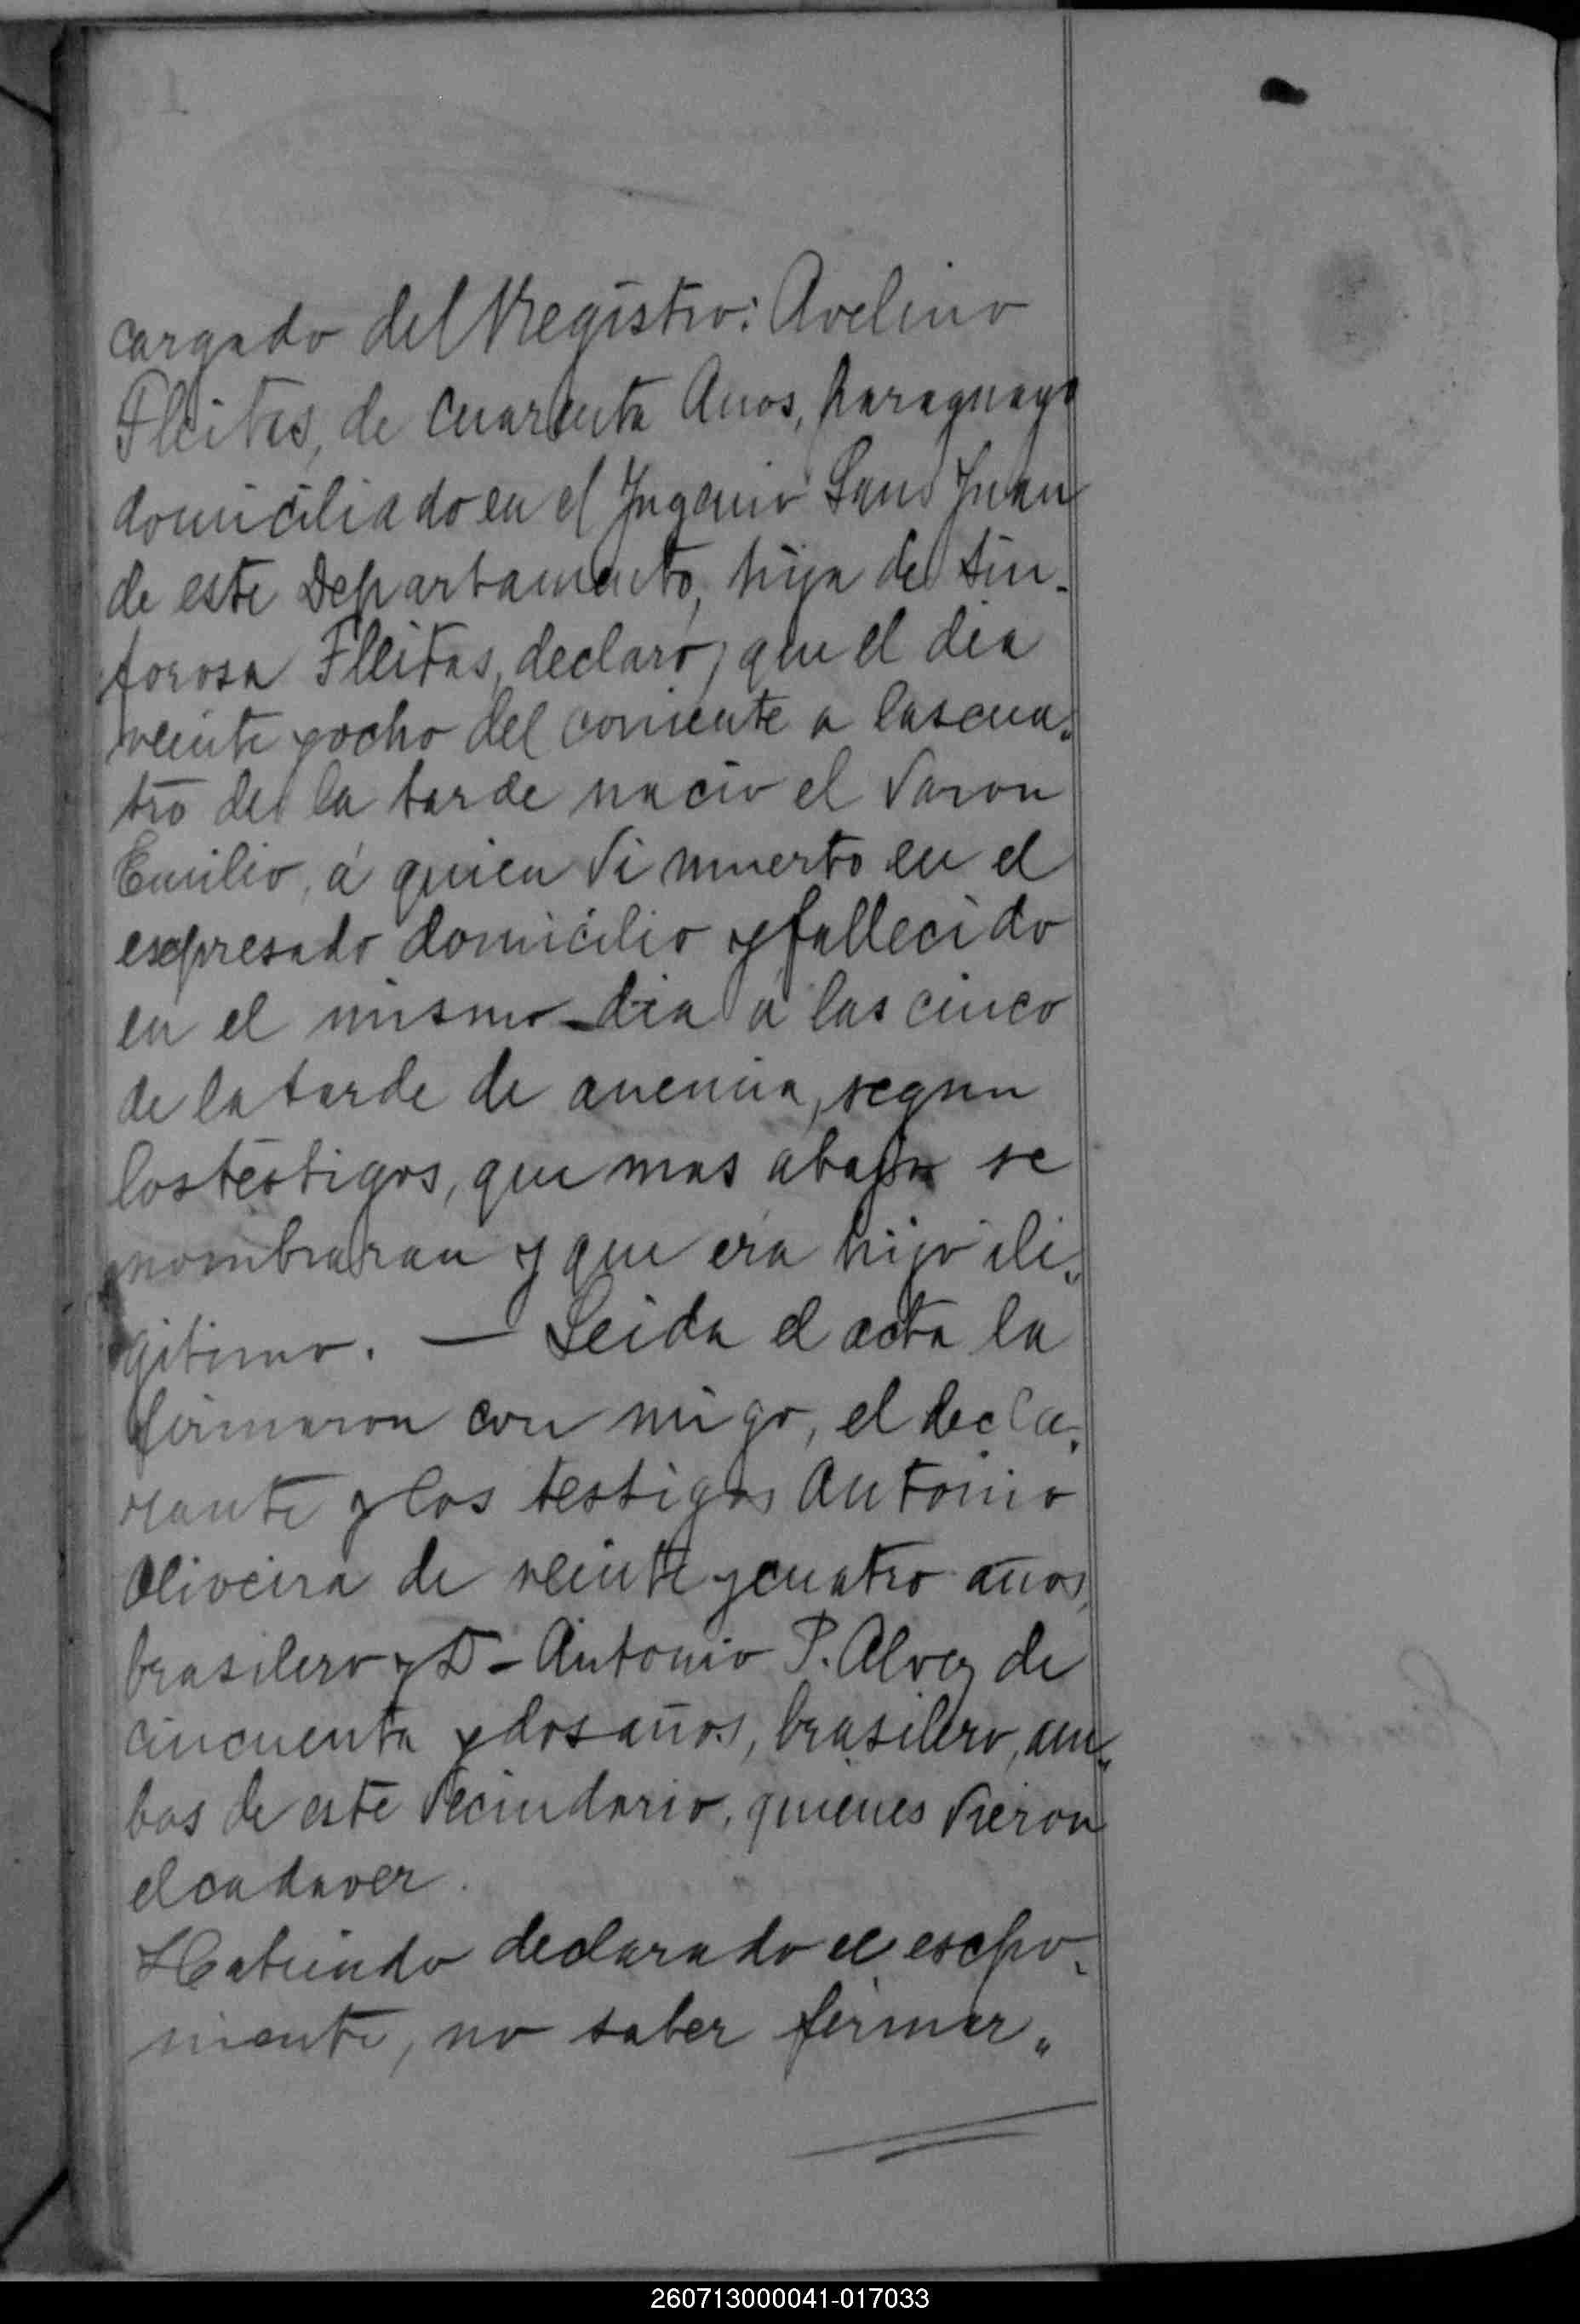 cargado del Registro: Avelino
Fleitas, de cuarenta Anos, paraguayo
domiciliado en el Ingenio San Juan
de este Departamento, hijo de Sin-
forosa Fleitas, declaró, que el dia
veinte y ocho del corriente a las cua-
tro de la tarde nacio el Varon
Emilio, á quien Vi muerto en el
expresado domicilio y fallecido
en el mismo dia á las cinco
de la tarde de anemia, segun
los testigos, que mas abajo se
nombraran y que era hijo ile-
gitimo. — Leida el acta la
firmaron con migo, el decla-
rante y los testigos Antonio
Oliveira de veinte y cuatro años,
brasilero y D- Antonio P. Alvez de
cincuenta y dos años, brasilero, am-
bos de este Vecindario, quienes Vieron
el cadaver.
Habiendo declarado el expo-
niente, no saber firmar "
260713000041-017033